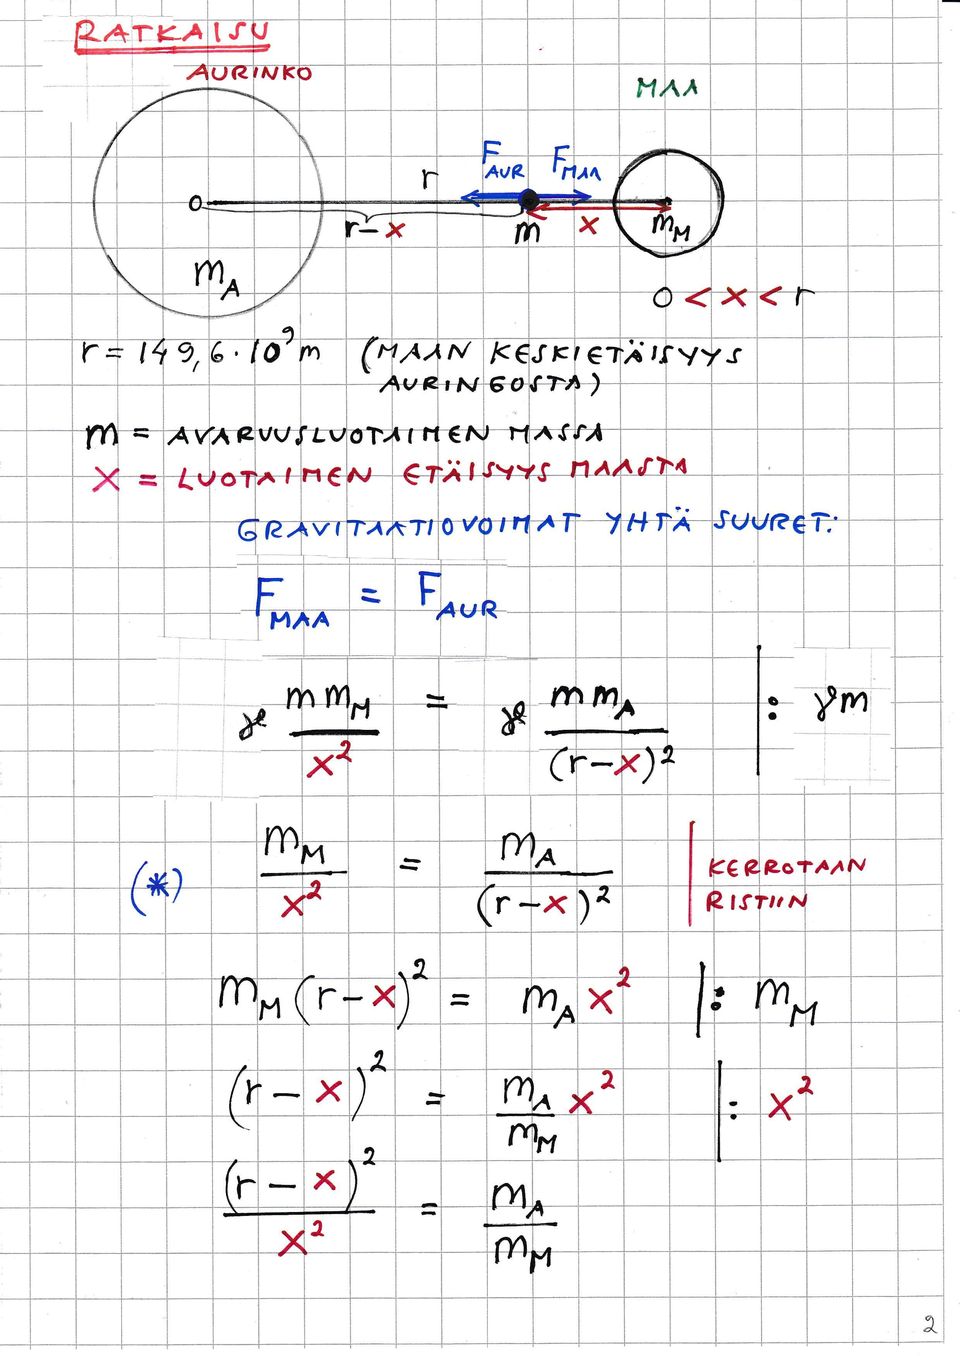 RATKAISU
AURINKO
MAA
F_AUR F_MAA
r
r-x m x m_M
m_A
0 < x < r
r = 149,6 · 10^9 m (MAAN KESKIETÄISYYS
AURINGOSTA)
m = AVARUUSLUOTAIMEN MASSA
X = LUOTAIMEN ETÄISYYS MAASTA
GRAVITAATIOVOIMAT YHTÄ SUURET:
F_MAA = F_AUR
γ m m_M / x² = γ m m_A / (r-x)² | : γm
(*) m_M / x² = m_A / (r-x)² | KERROTAAN
RISTIIN
m_M (r-x)² = m_A x² | : m_M
(r-x)² = m_A / m_M x² | : x²
(r-x)² / x² = m_A / m_M
2